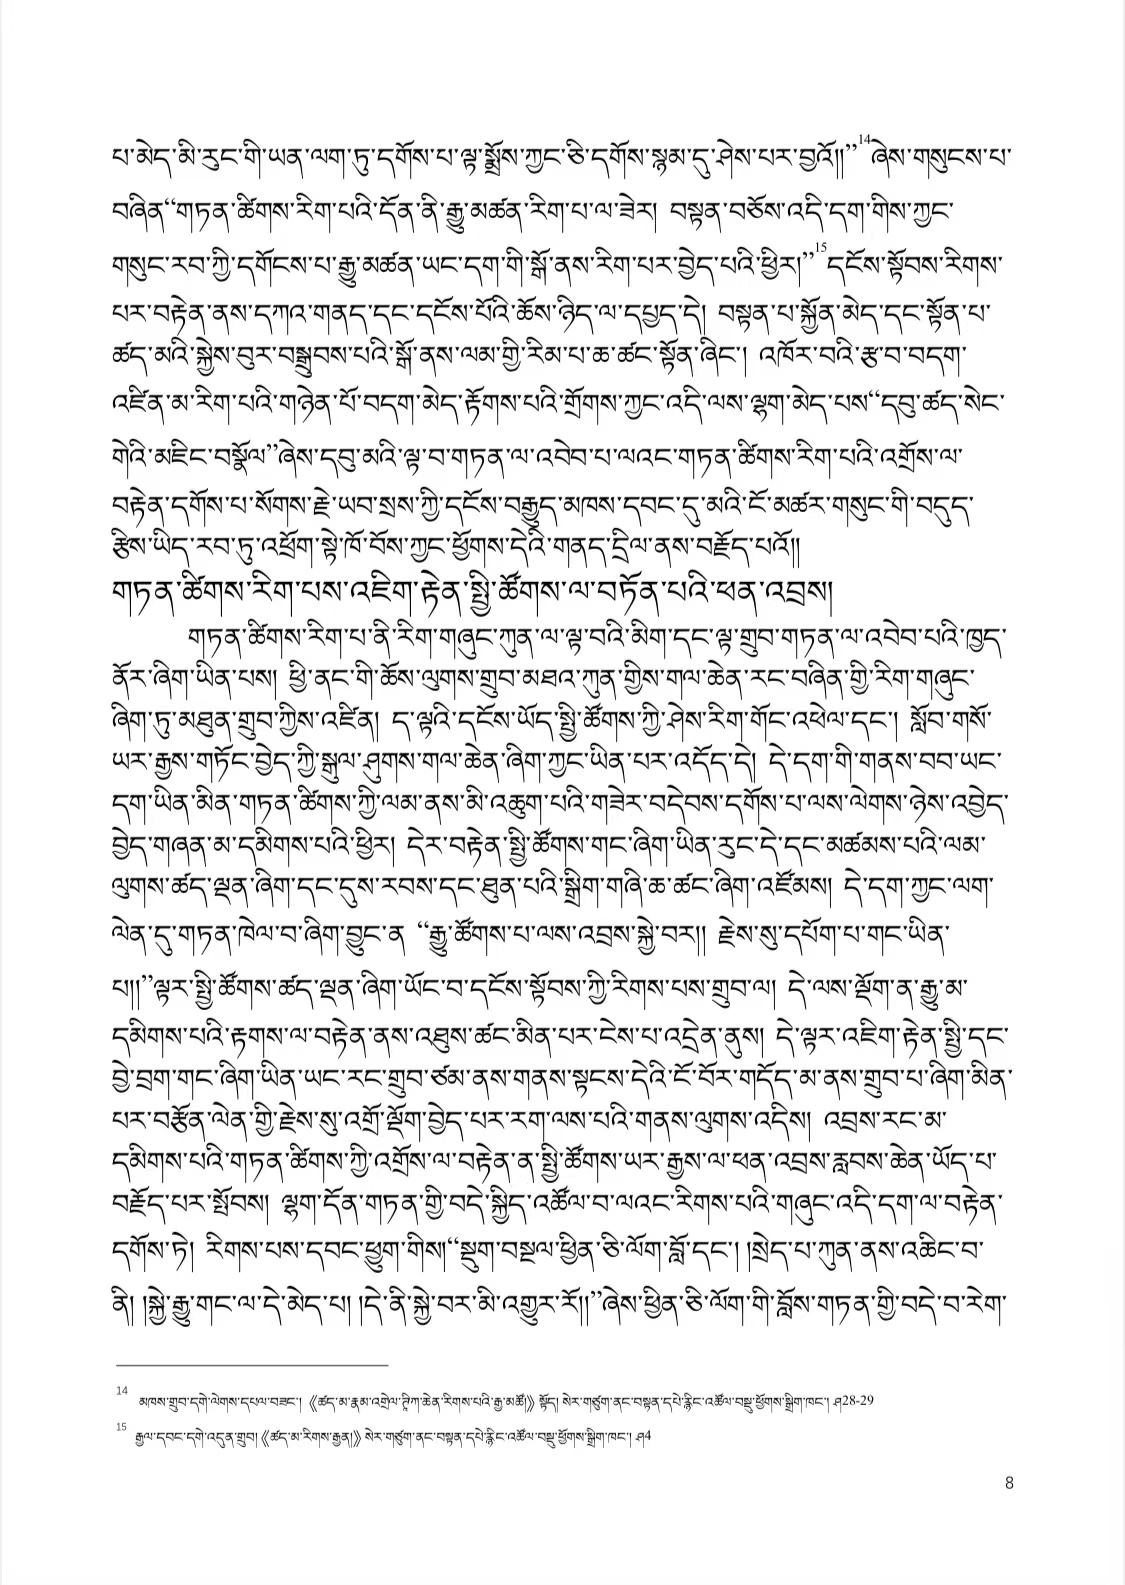 པ་མེད་མི་རུང་གི་ཡན་ལག་ཏུ་དགོས་པ་ལྟ་སྨྲོས་ཀྱང་ཅི་དགོས་སྙམ་དུ་ཤེས་པར་བྱའོ།།”14ཞེས་གསུངས་པ་
བཞིན“གཏན་ཚིགས་རིག་པའི་དོན་ནི་རྒྱུ་མཚན་རིག་པ་ལ་ཟེར། བསྟན་བཅོས་འདི་དག་གིས་ཀྱང་
གསུང་རབ་ཀྱི་དགོངས་པ་རྒྱུ་མཚན་ཡང་དག་གི་སྒོ་ནས་རིག་པར་བྱེད་པའི་ཕྱིར།”15དངོས་སྟོབས་རིགས་
པར་བརྟེན་ནས་དཀའ་གནད་དང་དངོས་པོའི་ཆོས་ཉིད་ལ་དཔྱད་དེ། བསྟན་པ་སྐྱོན་མེད་དང་སྟོན་པ་
ཚད་མའི་སྐྱེས་བུར་བསྒྲུབས་པའི་སྒོ་ནས་ལམ་གྱི་རིམ་པ་ཆ་ཚང་སྟོན་ཞིང་། འཁོར་བའི་རྩ་བ་བདག་
འཛིན་མ་རིག་པའི་གཉེན་པོ་བདག་མེད་རྟོགས་པའི་གྲོགས་ཀྱང་འདི་ལས་ལྷག་མེད་པས“དབུ་ཚད་སེང་
གེའི་མཇིང་བསྣོལ”ཞེས་དབུ་མའི་ལྟ་བ་གཏན་ལ་འབེབ་པ་ལའང་གཏན་ཚིགས་རིག་པའི་འགྲོས་ལ་
བརྟེན་དགོས་པ་སོགས་རྗེ་ཡབ་སྲས་ཀྱི་དངོས་བརྒྱུད་མཁས་དབང་དུ་མའི་ངོ་མཚར་གསུང་གི་བདུད་
རྩིས་ཡིད་རབ་ཏུ་འཕྲོག་སྟེ་ཁོ་བོས་ཀྱང་ཕྱོགས་དེའི་གནད་དྲིལ་ནས་བརྗོད་པའོ།།
གཏན་ཚིགས་རིག་པས་འཇིག་རྟེན་སྤྱི་ཚོགས་ལ་བཏོན་པའི་ཕན་འབྲས།
གཏན་ཚིགས་རིག་པ་ནི་རིག་གཞུང་ཀུན་ལ་ལྟ་བའི་མིག་དང་ལྟ་གྲུབ་གཏན་ལ་འབེབ་པའི་ཁྱད་
ནོར་ཞིག་ཡིན་པས། ཕྱི་ནང་གི་ཆོས་ལུགས་གྲུབ་མཐའ་ཀུན་གྱིས་གལ་ཆེན་རང་བཞིན་གྱི་རིག་གཞུང་
ཞིག་ཏུ་མཐུན་གྲུབ་ཀྱིས་འཛིན། ད་ལྟའི་དངོས་ཡོད་སྤྱི་ཚོགས་ཀྱི་ཤེས་རིག་གོང་འཕེལ་དང་། སློབ་གསོ་
ཡར་རྒྱས་གཏོང་བྱེད་ཀྱི་སྒུལ་ཤུགས་གལ་ཆེན་ཞིག་ཀྱང་ཡིན་པར་འདོད་དེ། དེ་དག་གི་གནས་བབ་ཡང་
དག་ཡིན་མིན་གཏན་ཚིགས་ཀྱི་ལམ་ནས་མི་འཆུག་པའི་གཟེར་བདེབས་དགོས་པ་ལས་ལེགས་ཉེས་འབྱེད་
བྱེད་གཞན་མ་དམིགས་པའི་ཕྱིར། དེར་བརྟེན་སྤྱི་ཚོགས་གང་ཞིག་ཡིན་རུང་དེ་དང་མཚམས་པའི་ལམ་
ལུགས་ཚད་ལྡན་ཞིག་དང་དུས་རབས་དང་ཐུན་པའི་སྒྲིག་གཞི་ཆ་ཚང་ཞིག་འཛོམས། དེ་དག་ཀྱང་ལག་
ལེན་དུ་གཏན་ཁེལ་བ་ཞིག་བྱུང་ན “རྒྱུ་ཚོགས་པ་ལས་འབྲས་སྐྱེ་བར།། རྗེས་སུ་དཔོག་པ་གང་ཡིན་
པ།།”ལྟར་སྤྱི་ཚོགས་ཚད་ལྡན་ཞིག་ཡོང་བ་དངོས་སྟོབས་ཀྱི་རིགས་པས་གྲུབ་ལ། དེ་ལས་ལྡོག་ན་རྒྱུ་མ་
དམིགས་པའི་རྟགས་ལ་བརྟེན་ནས་འཐུས་ཚང་མིན་པར་ངེས་པ་འདྲེན་ནུས། དེ་ལྟར་འཇིག་རྟེན་སྤྱི་དང་
བྱེ་བྲག་གང་ཞིག་ཡིན་ཡང་རང་གྲུབ་ཙམ་ནས་གནས་སྟངས་དེའི་ངོ་བོར་གདོད་མ་ནས་གྲུབ་པ་ཞིག་མིན་
པར་བརྩོན་ལེན་གྱི་རྗེས་སུ་འགྲོ་ལྡོག་བྱེད་པར་རག་ལས་པའི་གནས་ལུགས་འདིས། འབྲས་རང་མ་
དམིགས་པའི་གཏན་ཚིགས་ཀྱི་འགྲོས་ལ་བརྟེན་ན་སྤྱི་ཚོགས་ཡར་རྒྱས་ལ་ཕན་འབྲས་རླབས་ཆེན་ཡོད་པ་
བརྗོད་པར་སྤོབས། ལྷག་དོན་གཏན་གྱི་བདེ་སྐྱིད་འཚོལ་བ་ལའང་རིགས་པའི་གཞུང་འདི་དག་ལ་བརྟེན་
དགོས་ཏེ། རིགས་པས་དབང་ཕྱུག་གིས།“སྡུག་བསྔལ་ཕྱིན་ཅི་ལོག་བློ་དང་། །སྲེད་པ་ཀུན་ནས་འཆིང་བ་
ནི། །སྐྱེ་རྒྱུ་གང་ལ་དེ་མེད་པ། །དེ་ནི་སྐྱེ་བར་མི་འགྱུར་རོ།།”ཞེས་ཕྱིན་ཅི་ལོག་གི་བློས་གཏན་གྱི་བདེ་བ་རེག་
14 མཁས་གྲུབ་དགེ་ལེགས་དཔལ་བཟང་། 《ཚད་མ་རྣམ་འགྲེལ་ཊཱིཀ་ཆེན་རིགས་པའི་རྒྱ་མཚོ།》 སྟོད། སེར་གཙུག་ནང་བསྟན་དཔེ་རྙིང་འཚོལ་བསྡུ་ཕྱོགས་སྒྲིག་ཁང་། ཤ28-29
15 རྒྱལ་དབང་དགེ་འདུན་གྲུབ། 《ཚད་མ་རིགས་རྒྱན།》 སེར་གཙུག་ནང་བསྟན་དཔེ་རྙིང་འཚོལ་བསྡུ་ཕྱོགས་སྒྲིག་ཁང་། ཤ4
8